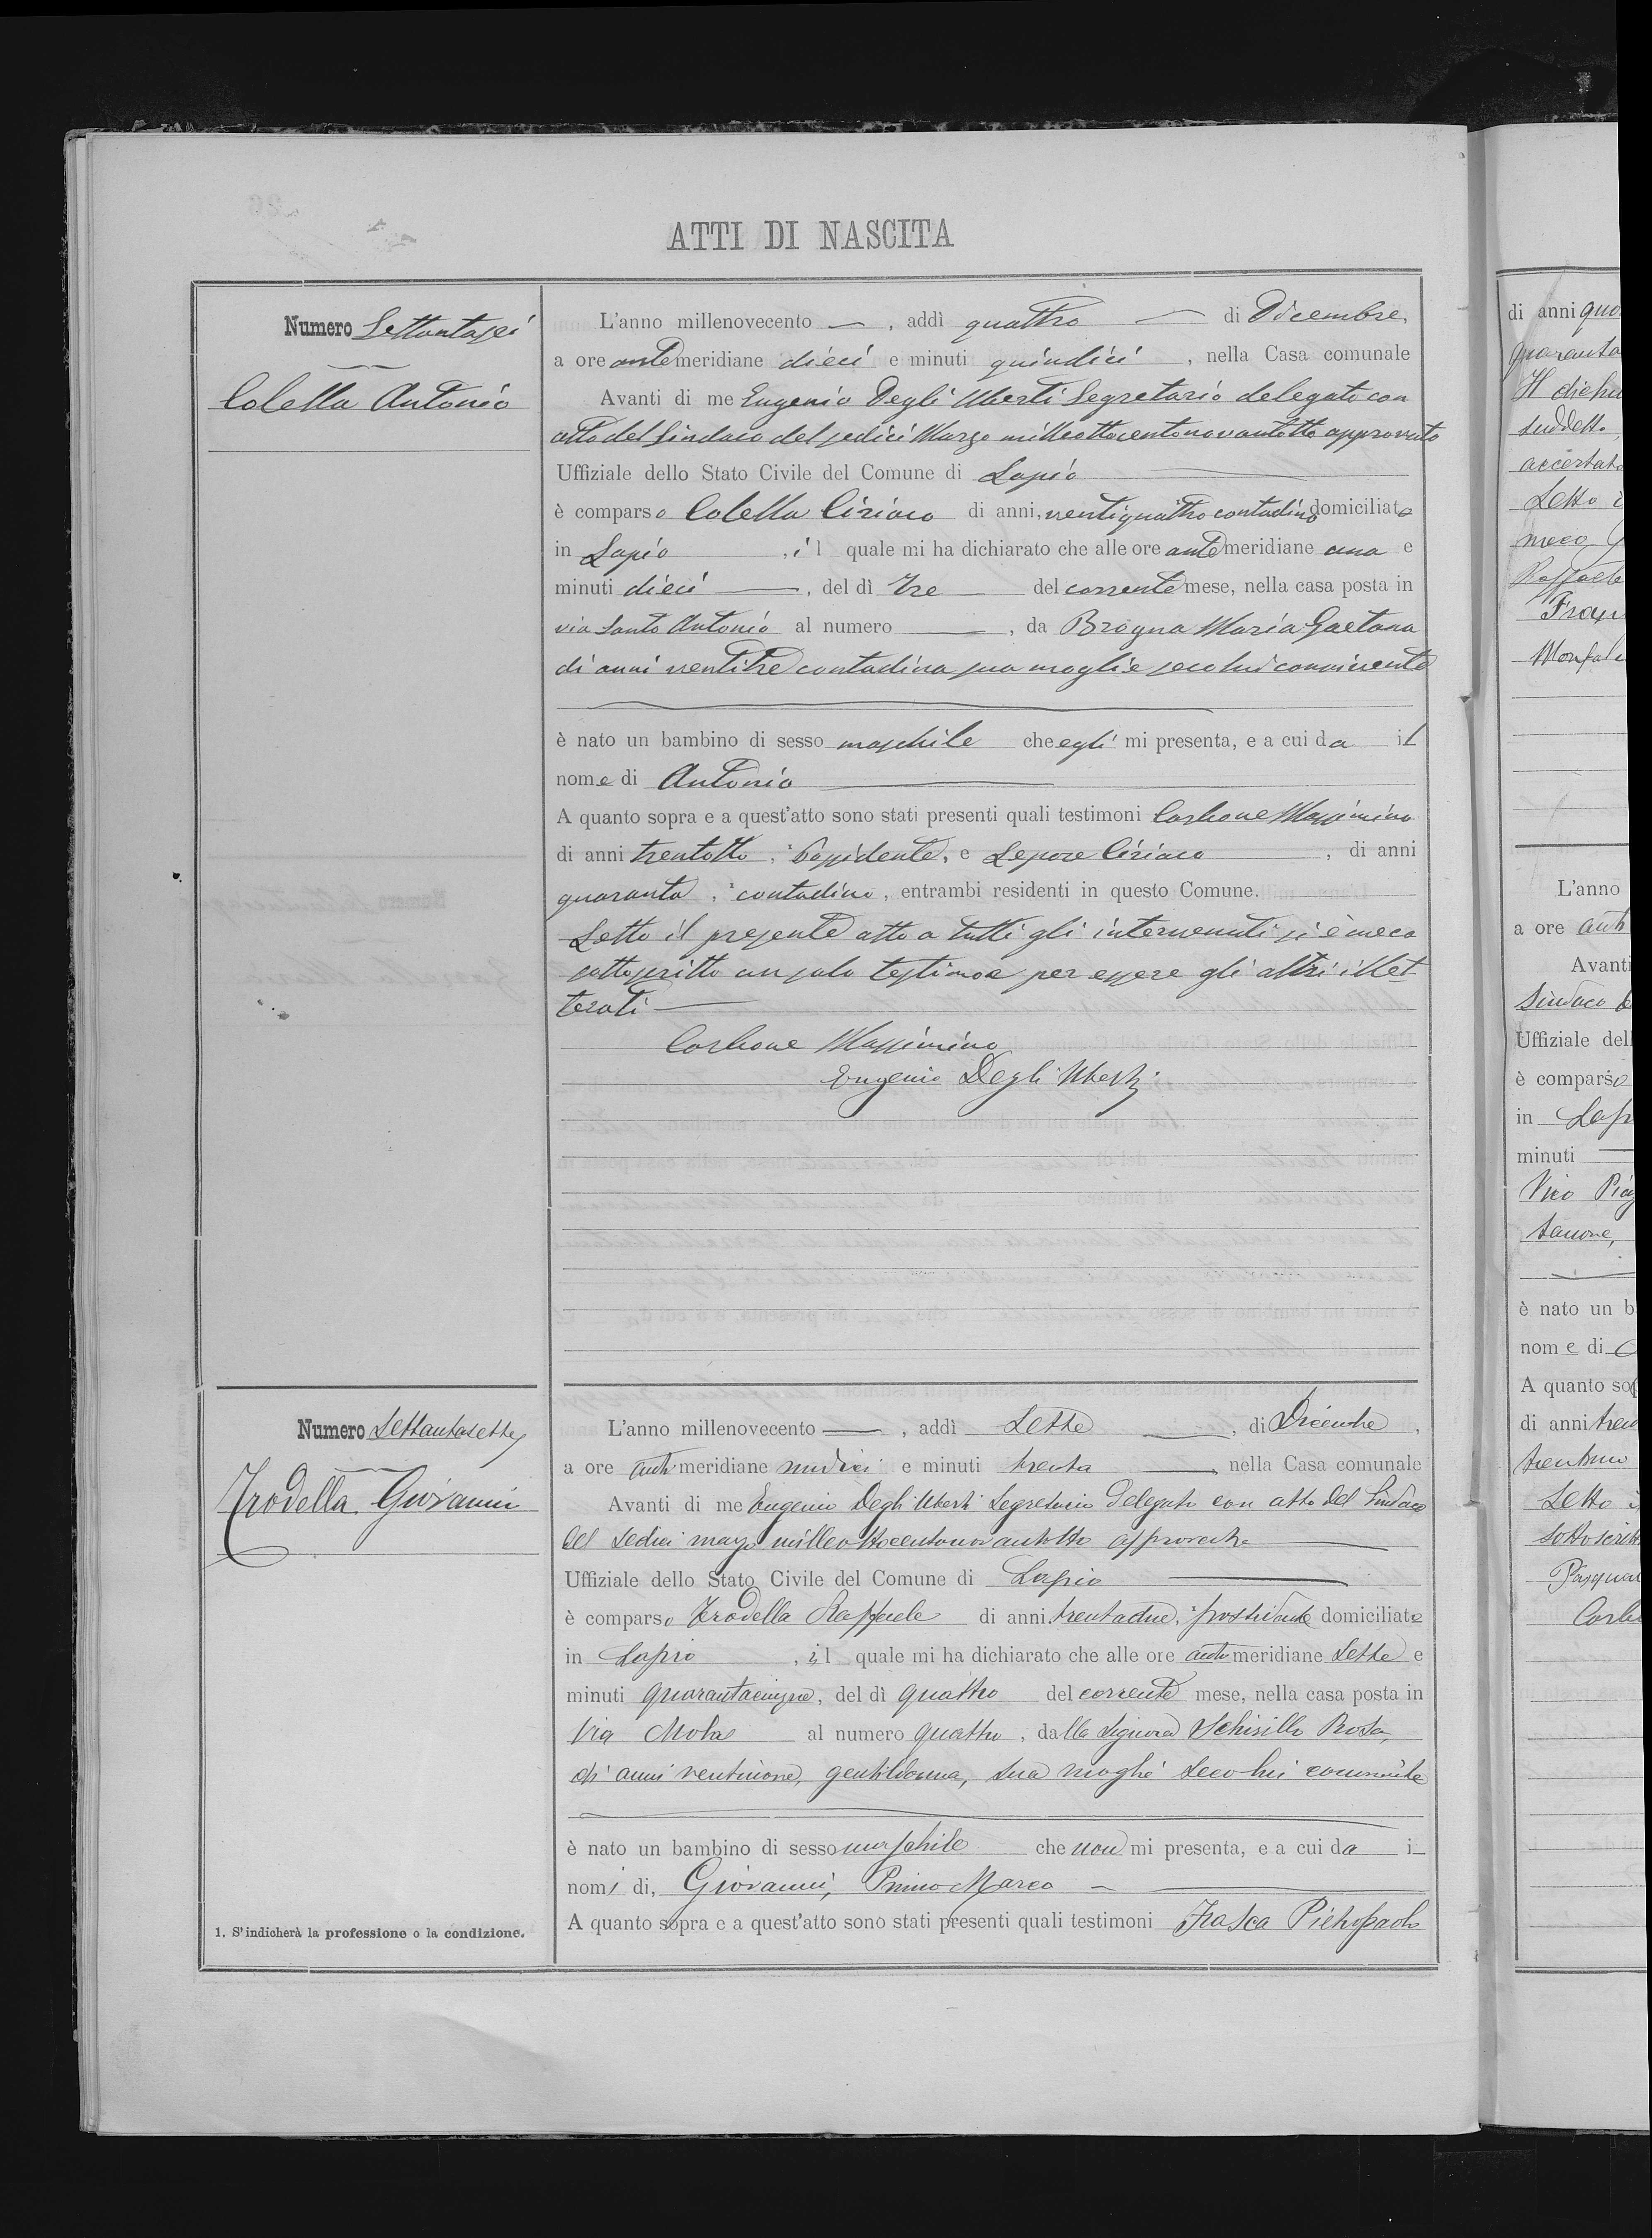 ATTI DI NASCITA
Numero Settantasei
Colella Antonio
L'anno millenovecento — , addì quattro — di Dicembre,
a ore antemeridiane dieci e minuti quindici , nella Casa comunale
Avanti di me Eugenio Degli Uberti Segretario delegato con
atto del Sindaco del sedici Marzo milleottocentonovantotto approvato
Uffiziale dello Stato Civile del Comune di Lapio
è comparso Colella Ciriaco di anni, ventiquattro contadino domiciliato
in Lapio , il quale mi ha dichiarato che alle ore antemeridiane una e
minuti dieci — , del dì tre — del corrente mese, nella casa posta in
via Santo Antonio al numero — , da Brogna Maria Gaetana
di anni ventitre contadina sua moglie seco lui convivente
è nato un bambino di sesso maschile che egli mi presenta, e a cui da il
nome di Antonio
A quanto sopra e a quest'atto sono stati presenti quali testimoni Carbone Massimino
di anni trentotto, possidente, e Lepore Ciriaco , di anni
quaranta, contadino, entrambi residenti in questo Comune.
Letto il presente atto a tutti gli intervenuti si è meco
sottoscritto un solo testimone per essere gli altri illet-
terati —
Carbone Massimino
Eugenio Degli Uberti
Numero Settantasette
Trodella Giovanni
L'anno millenovecento — , addì Sette — , di Dicembre ,
a ore antimeridiane undici e minuti trenta — nella Casa comunale
Avanti di me Eugenio Degli Uberti Segretario delegato con atto del Sindaco
del sedici marzo milleottocentonovantotto approvato
Uffiziale dello Stato Civile del Comune di Lapio
è comparso Trodella Raffaele di anni trentadue, possidente domiciliato
in Lapio , il quale mi ha dichiarato che alle ore antimeridiane Sette e
minuti quarantacinque, del dì quattro del corrente mese, nella casa posta in
Via al numero quattro , dalla Signora Schirillo Rosa,
di anni ventinove, gentildonna, sua moglie seco lui convivente
è nato un bambino di sesso maschile che non mi presenta, e a cui da i
nomi di, Giovanni, Primo Marco —
A quanto sopra e a quest'atto sono stati presenti quali testimoni Frasca Pietropaolo
1. S'indicherà la professione o la condizione.
di anni
quaranta
suddetto
Letto
meco
Raffaele
L'anno
a ore
Avanti
Sindaco
Uffiziale del
è comparso
in Lap
minuti
Vico
è nato un b
nome di
A quanto so
di anni
Letto